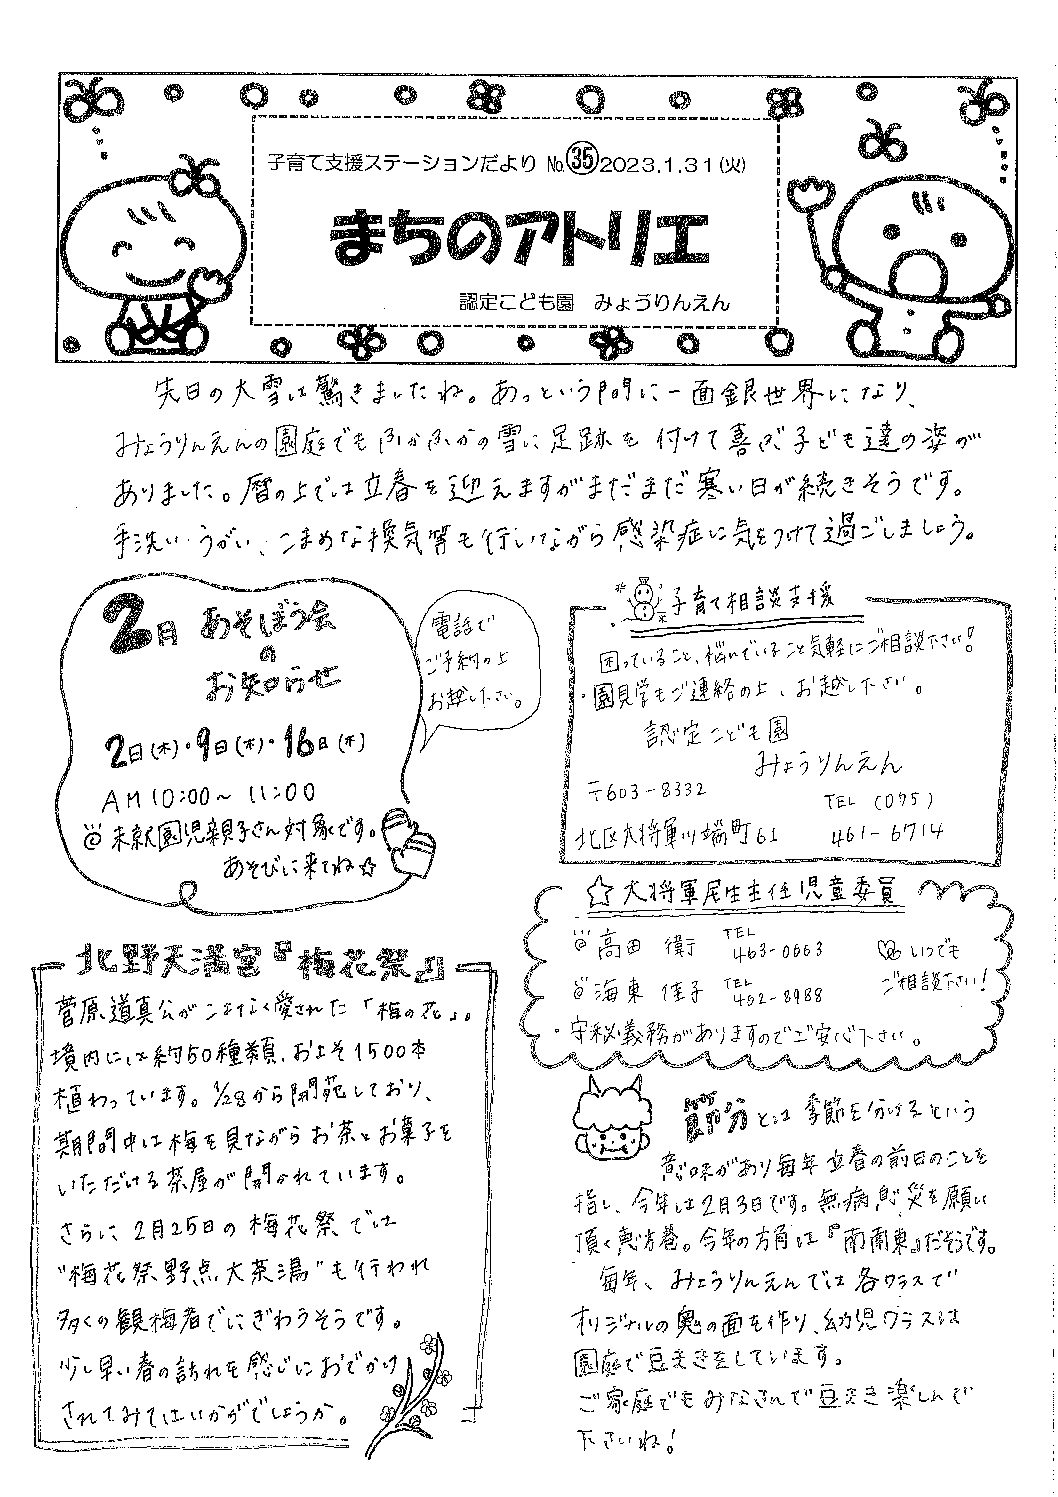 子育て支援ステーションだより No.㉟2023.1.31(火)
まちのアトリエ
認定こども園 みょうりんえん
先日の大雪は驚きましたね。あっという間に一面銀世界になり、
みょうりんえんの園庭でもふかふかの雪に足跡を付けて喜ぶ子ども達の姿が
ありました。暦の上では立春を迎えますがまだまだ寒い日が続きそうです。
手洗い・うがい、こまめな換気等も行いながら感染症に気をつけて過ごしましょう。
2月 あそぼう会
の
お知らせ
2日(木)・9日(木)・16日(木)
AM10:00~11:00
@未就園児親子さん対象です。
あそびに来てね☆
電話で
ご予約の上
お越し下さい。
子育て相談支援
困っていること、悩んでいること気軽にご相談下さい!
・園見学もご連絡の上、お越し下さい。
認定こども園
みょうりんえん
〒603-8332
TEL (075)
北区大将軍川端町61 461-6714
☆大将軍民生主任児童委員
@高田 衛 TEL 463-0663
@海東 佳子 TEL 462-8988
いつでも
ご相談下さい!
・守秘義務がありますのでご安心下さい。
北野天満宮『梅花祭』
菅原道真公がこよなく愛された「梅の花」。
境内には約50種類、およそ1500本
植わっています。1/28から開苑しており、
期間中は梅を見ながらお茶とお菓子を
いただける茶屋が開かれています。
さらに2月25日の梅花祭では
"梅花祭野点大茶湯"も行われ
多くの観梅者でにぎわうそうです。
少し早い春の訪れを感じにおでかけ
されてみてはいかがでしょうか。
節分とは季節を分けるという
意味があり毎年立春の前日のことを
指し、今年は2月3日です。無病息災を願い
頂く恵方巻。今年の方角は『南南東』だそうです。
毎年、みょうりんえんでは各クラスで
オリジナルの鬼の面を作り、幼児クラスは
園庭で豆まきをしています。
ご家庭でもみなさんで豆まき楽しんで
下さいね!